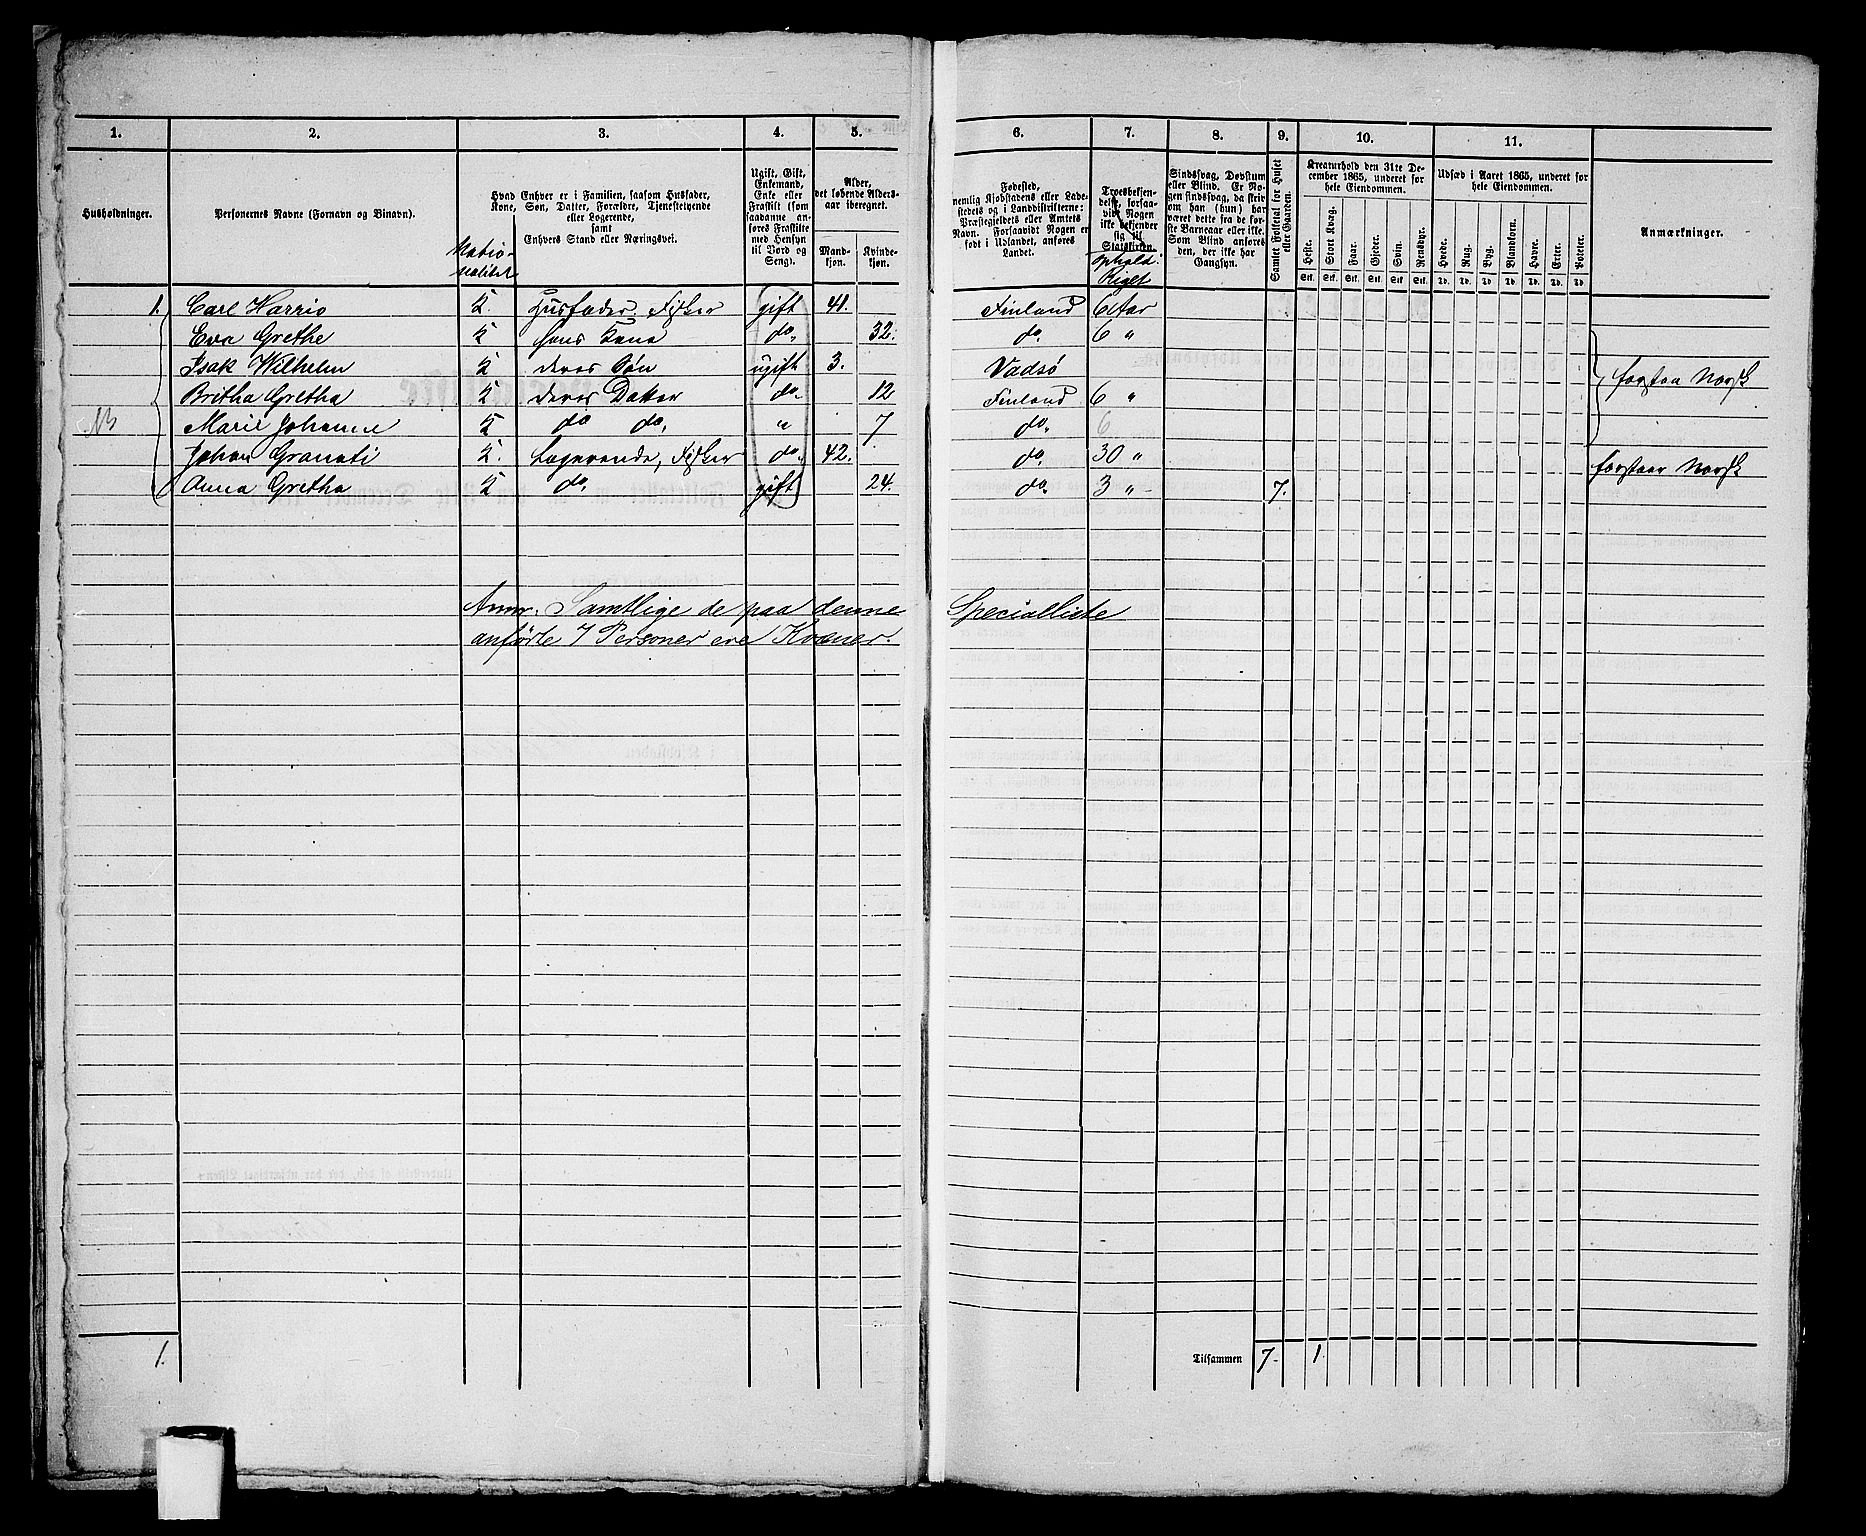 1. 2. 3. 4. 5. 6. 7. 8. 9. 10. 11.
Husholdninger.
Personernes Navne (Fornavn og Binavn).
Natio-
nalitet
Hvad Enhver er i Familien, saasom Husfader,
Kone, Søn, Datter, Forældre, Tjenestetyende
eller Logerende,
samt
Enhvers Stand eller Næringsvei.
Ugift, Gift,
Enkemand,
Enke eller
Fraskilt (som
saadanne an-
føres Fraskilte
med Hensyn
til Bord og
Seng).
Alder,
det løbende Alders-
aar iberegnet.
Mand-
kjøn.
Kvinde-
kjøn.
Fødested,
nemlig Kjøbstadens eller Lade-
stedets og i Landdistrikterne:
Præstegjeldets eller Amtets
Navn. Forsaavidt Nogen er
født i Udlandet, anføres
Landet.
Troesbekjen-
delse, forsaa-
vidt Nogen
ikke bekjender
sig til
Statskirken.
Ophold i
Riget
Sindssvag, Døvstum
eller Blind. Er No-
gen sindssvag, da skriv
om han (hun) har
været dette fra de før-
ste Barneaar eller ikke.
Som Blind anføres
den, der ikke har
Gangsyn.
Samlet Folketal for Huset
eller Gaarden.
Kreaturhold den 31te De-
cember 1865, underet for
hele Eiendommen.
Heste. Stort Kvæg. Faar. Gjeder. Svin. Rensdyr.
Stk. Stk. Stk. Stk. Stk. Stk.
Udsæd i Aaret 1865, underet for
hele Eiendommen.
Hvede. Rug. Byg. Blandkorn. Havre. Erter. Poteter.
Td. Td. Td. Td. Td. Td. Td.
Anmærkninger.
1. Carl Harrio K. Husfader. Fisker gift 41. Finland 6 Aar
Eva Grethe K hans Kone do. 32. do. 6 "
Isak Wilhelm K deres Søn ugift 3. Vadsø
Britha Gretha K deres Datter do. 12 Finland 6 " forstaa Norsk
NB Marie Johanne K do do. " 7 do. 6
Johan Granati K. Logerende, Fisker do. 42. do. 30 " forstaar Norsk
Anna Gretha K do. gift 24. do. 3 " 7.
Anm. Samtlige de paa denne Specialliste
anførte 7 Personer ere Kvæner.
1. Tilsammen 7. 1.